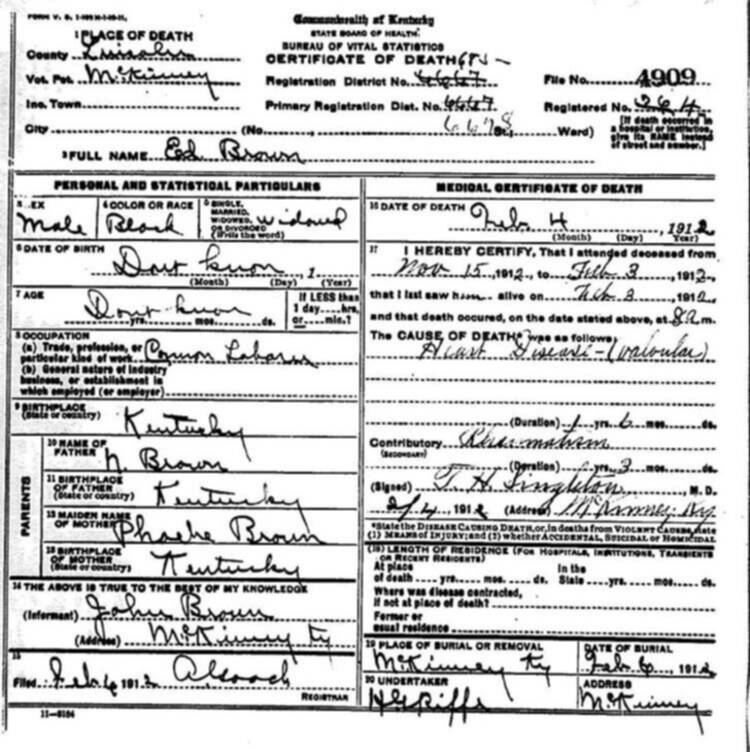 FORM V. S. 
Commonwealth of Kentucky
STATE BOARD OF HEALTH.
BUREAU OF VITAL STATISTICS
CERTIFICATE OF DEATH
1 PLACE OF DEATH
County Lincoln
Vot. Pct. McKinney
Inc. Town
City (No. St. Ward)
Registration District No.
Primary Registration Dist. No. 6667
6678
File No. 4909
Registered No. 264
[If death occurred in a hospital or institution, give its NAME instead of street and number.]
2 FULL NAME Ed Brown
PERSONAL AND STATISTICAL PARTICULARS
SEX
Male
4 COLOR OR RACE
Black
5 SINGLE, MARRIED, WIDOWED, OR DIVORCED (Write the word)
Widowed
6 DATE OF BIRTH
Dont know, 1
(Month) (Day) (Year)
7 AGE
Dont know
yrs. mos. ds.
If LESS than
1 day....hrs.
or....min.?
8 OCCUPATION
(a) Trade, profession, or
particular kind of work Common Laborer
(b) General nature of industry
business, or establishment in
which employed (or employer)
9 BIRTHPLACE
(State or country) Kentucky
PARENTS
10 NAME OF
FATHER N. Brown
11 BIRTHPLACE
OF FATHER
(State or country) Kentucky
12 MAIDEN NAME
OF MOTHER Phoebe Brown
13 BIRTHPLACE
OF MOTHER
(State or country) Kentucky
14 THE ABOVE IS TRUE TO THE BEST OF MY KNOWLEDGE
(Informant) John Brown
(Address) McKinney Ky
15
Filed Feb 4 1912
REGISTRAR
11-5184
MEDICAL CERTIFICATE OF DEATH
16 DATE OF DEATH
Feb. 4 1912
(Month) (Day) (Year)
17 I HEREBY CERTIFY, That I attended deceased from
Nov 15, 1912, to Feb 3, 1912,
that I last saw him alive on Feb 3, 1912,
and that death occured, on the date stated above, at 8 a m.
The CAUSE OF DEATH* was as follows:
Heart Disease - (valvular)
(Duration) 1 yrs. 6 mos. ds.
Contributory Rheumatism
(SECONDARY)
(Duration) yrs. 3 mos. ds.
(Signed) T. H. Singleton, M. D.
2/4, 1912 (Address) McKinney Ky.
*State the DISEASE CAUSING DEATH, or, in deaths from VIOLENT CAUSES, state
(1) MEANS OF INJURY; and (2) whether ACCIDENTAL, SUICIDAL or HOMICIDAL
(18) LENGTH OF RESIDENCE (FOR HOSPITALS, INSTITUTIONS, TRANSIENTS
OR RECENT RESIDENTS)
At place In the
of death yrs. mos. ds. State yrs. mos. ds.
Where was disease contracted,
if not at place of death?
Former or
usual residence
19 PLACE OF BURIAL OR REMOVAL
McKinney Ky
DATE OF BURIAL
Feb 6, 1912
20 UNDERTAKER
ADDRESS
McKinney